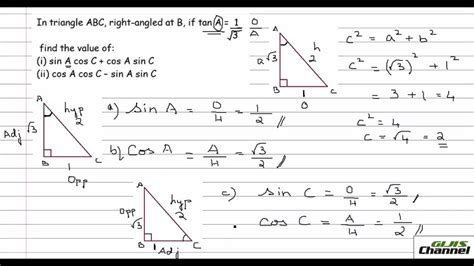 In triangle ABC, right-angled at B, if tan A = 1/√3 O/A
find the value of:
(i) sin A cos C + cos A sin C
(ii) cos A cos C – sin A sin C
A
a √3
h
2
B
C
1
O
c² = a² + b²
c² = (√3)² + 1²
= 3 + 1 = 4
c² = 4
c = √4 = 2
A
Adj √3
hyp
2
B
C
1
Opp
a) sin A = O/H = 1/2 //
b) Cos A = A/H = √3/2 //
A
opp
√3
hyp
2
B
C
1 Adj
c) sin C = O/H = √3/2 //
cos C = A/H = 1/2 //
GLJIS
Channel